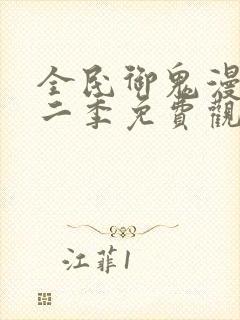 全民御鬼漫
二季免費觀
江菲1